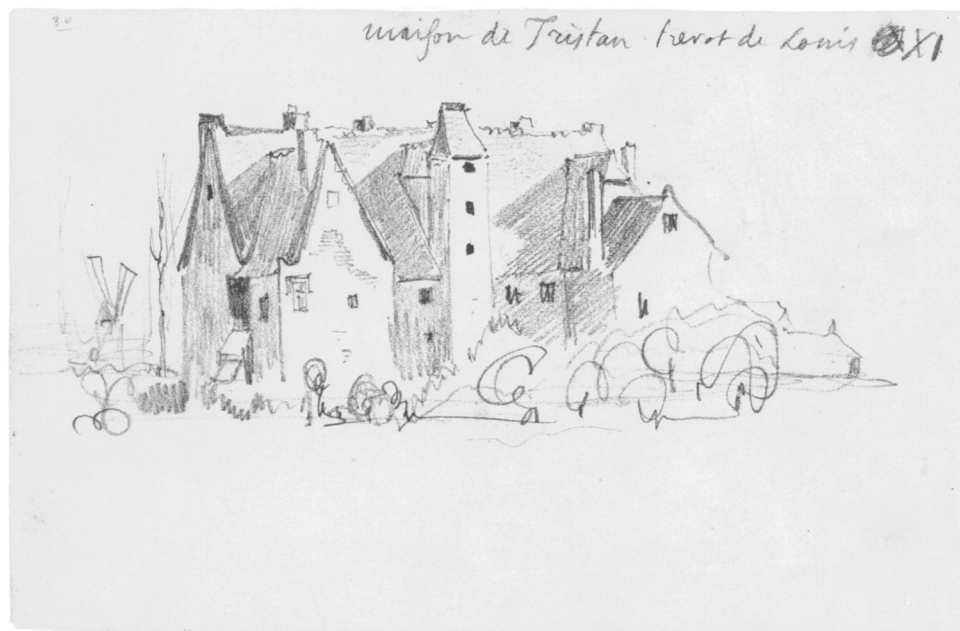 30
maison de Tristan prevot de Louis XI